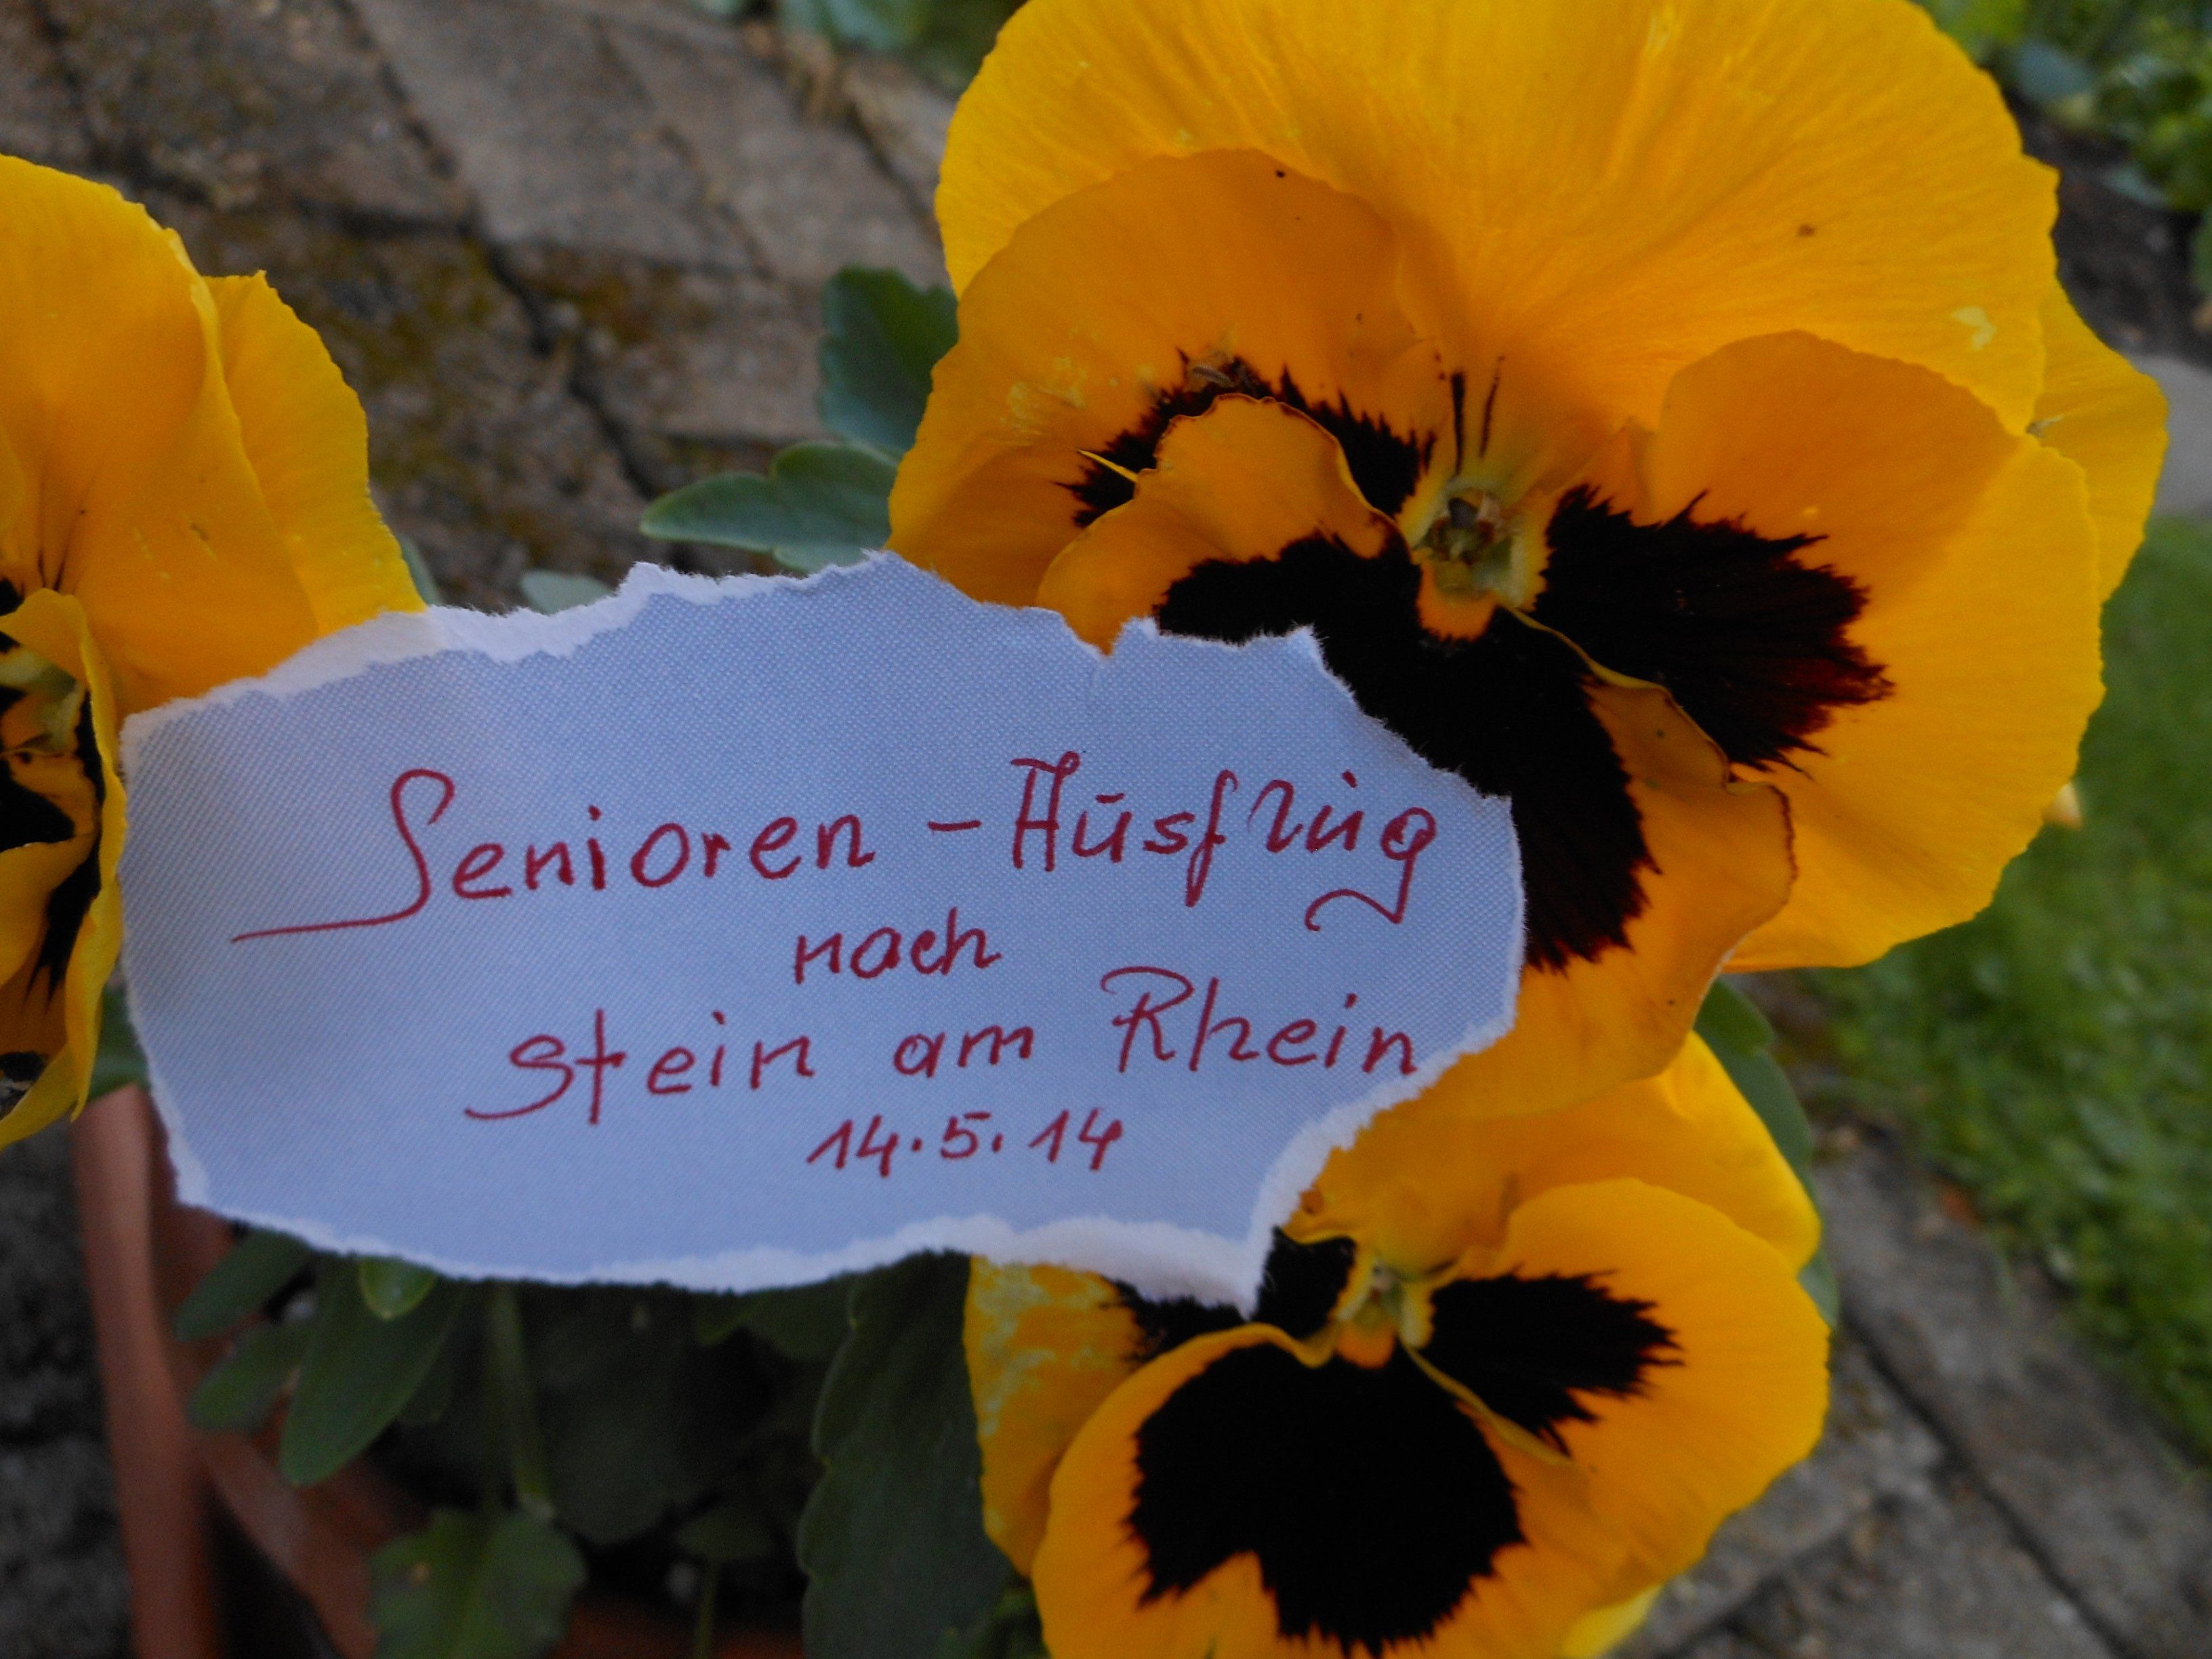 Senioren - Ausflug
nach
Stein am Rhein
14.5.14